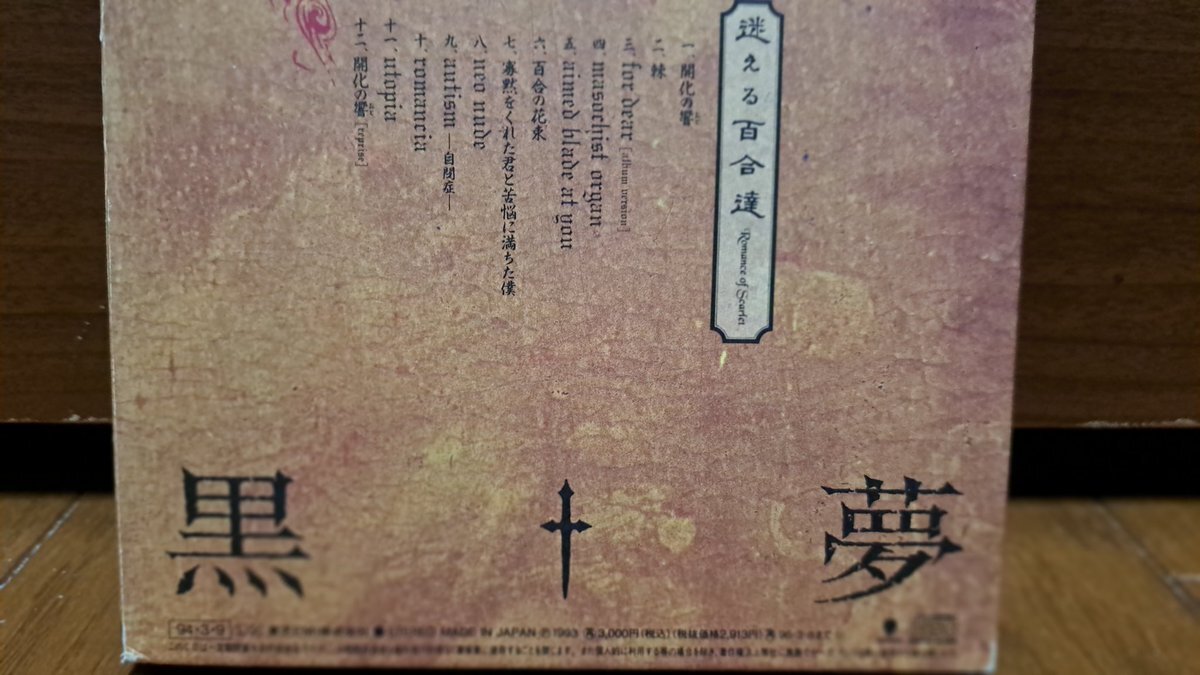 迷える百合達 Romance of Scarlet
一、開化の響
二、棘
三、for dear [album version]
四、masochist organ
五、aimed blade at you
六、百合の花束
七、寡黙をくれた君と苦悩に満ちた僕
八、neo nude
九、autism —自閉症—
十、romancia
十一、utopia
十二、開化の響 [reprise]
黒 夢
94・3・9 MADE IN JAPAN Ⓟ1993 3,000円(税込)(税抜価格2,913円)